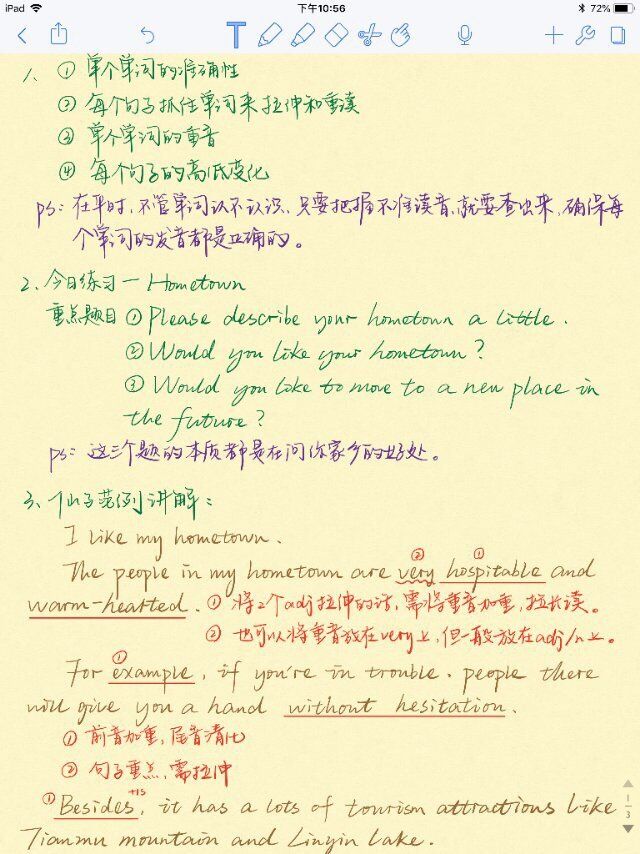 iPad 下午10:56 72%
1、① 单个单词的准确性
② 每个句子抓住单词来拉伸和重读
③ 单个单词的重音
④ 每个句子的高低变化
ps：在平时，不管单词认不认识，只要把握不准读音，就要查出来，确保每
个单词的发音都是正确的。
2、今日练习一 Hometown
重点题目 ① Please describe your hometown a little.
② Would you like your hometown?
③ Would you like to move to a new place in
the future?
ps：这三个题的本质都是在问你家乡的好处。
3、仙子范例讲解：
I like my hometown.
② ①
The people in my hometown are very hospitable and
warm-hearted. ① 将2个adj拉伸的话，需将重音加重，拉长读。
② 也可以将重音放在very上，但一般放在adj/n上。
①
For example, if you're in trouble. people there
will give you a hand without hesitation.
① 前音加重，尾音清化
② 句子重点，需拉伸
① Besides, it has a lots of tourism attractions like
Tianmu mountain and Linyin Lake.
1
3